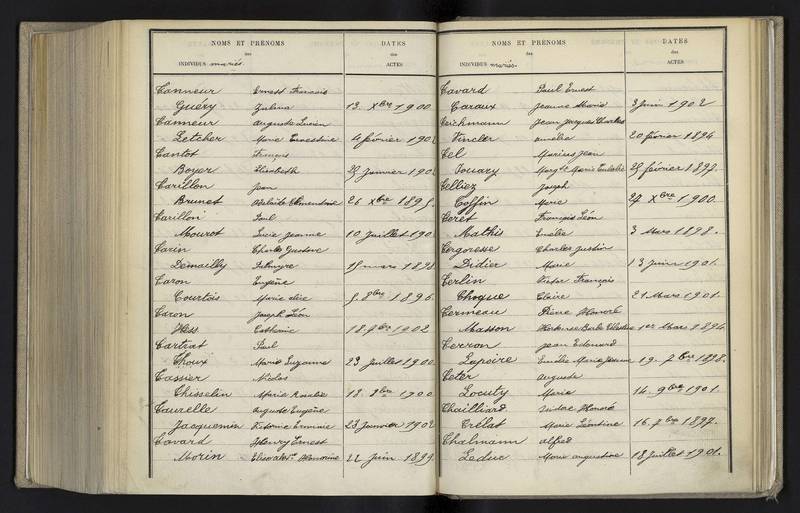 NOMS ET PRÉNOMS
des
INDIVIDUS mariés
DATES
des
ACTES
Canneur Ernest Francois
Guéry Zulma 13. Xbre 1900
Canneur Auguste Lucien
Letcher Marie Ernestine 4 février 1902
Cantot François
Boyer Elisabeth 29 Janvier 190
Carillon Jean
Brunet 26 Xbre 1895.
Carillon Paul
Mourot Lucie Jeanne 10 Juillet 190
Carin Charles Gustave
Demailly Palmyre 15 mars 1898
Caron Eugène
Courtois Marie 5. 8bre 1896.
Caron Joseph Léon
Hess Catherine 18. 1902
Cartrat Paul
Choux Marie Suzanne 23 Juillet 1900
Cassier Nicolas
Chisselin Marie Rosalie 18. 1900
Caurelle Auguste Eugène
Jacquemin Victorine Erminie 23 Janvier 1902
Cavard Henry Ernest
Morin Honorine 22 Juin 1899
NOMS ET PRÉNOMS
des
INDIVIDUS mariés.
DATES
des
ACTES
Cavard Paul Ernest
Caraux Jeanne Marie 3 Juin 1902
Ceichmann Jean Jacques Charles
Vincler Amélie 20 février 1894
Cel Marius Jean
Jouary Margte Marie Eulalie 25 février 1897.
Celliez Joseph
Coffin Marie 27 Xbre 1900.
Ceret François Léon
Mathis Emélie 3 Mars 1898.
Cergoresse Charles Justin
Didier Marie 13 Juin 1901.
Cerlin Victor François
Choque Claire 21 Mars 1901.
Cermeau Pierre Honoré
Masson Hortense Barbe Célestine 1er Mars 1894
Cerron Jean Edouard
Lapoire Emélie Marie Jeanne 19. 7bre 1898.
Ceter Auguste
Locuty Marie 14. 9bre 1901.
Chailliard Isidore Honoré
Trélat Marie Léontine 16. 7bre 1897.
Chalmann Alfred
Leduc Marie Augustine 18 Juillet 1901.